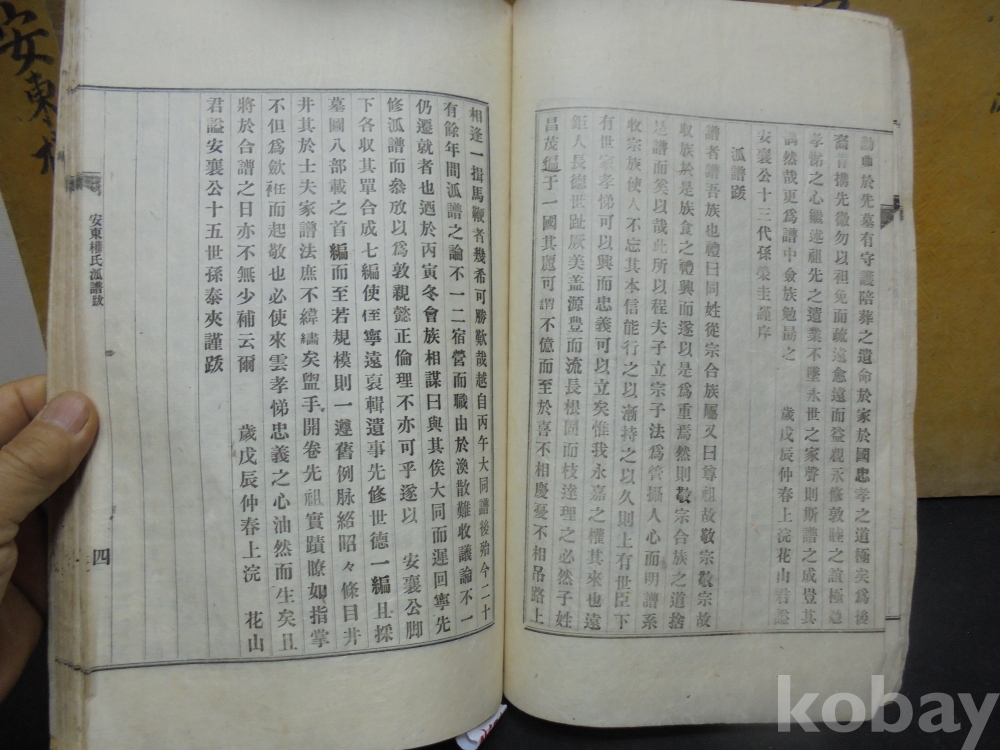 勳典於先墓有守護陪葬之遺命於家於國忠孝之道極矣爲後
裔者搆先徽勿以袒免而疏遠愈遠而益親永修敦睦之誼極追
孝悌之心繼述祖先之遺業不墜永世之家聲則斯譜之成豈其
偶然哉更爲譜中僉族勉勗之 歲戊辰仲春上浣花山君諡
安襄公十三代孫榮圭謹序
派譜跋
譜者譜吾族也禮曰同姓從宗合族屬又曰尊祖故敬宗敬宗故
收族於是族食之禮興而遂以是爲重焉然則敬宗合族之道捨
是譜而奚以哉此所以程夫子立宗子法爲管攝人心而明譜系
收宗族使人不忘其本信能行之以漸持之以久則上有世臣下
有世家孝悌可以興而忠義可以立矣惟我永嘉之權其來也遠
鉅人長德世趾厥美盖源豊而流長根固而枝達理之必然子姓
昌茂遍于一國其麗可謂不億而至於喜不相慶憂不相吊路上
相逢一揖馬鞭者幾希可勝歎哉越自丙午大同譜後殆今二十
有餘年間派譜之論不一二宿營而職由於渙散難收議論不一
仍遷就者也迺於丙寅冬會族相謀曰與其俟大同而遲回寧先
修派譜而叅放以爲敦親懿正倫理不亦可乎遂以 安襄公脚
下各收其單合成七編使侄寧遠裒輯遺事先修世德一編且採
墓圖八部載之首編而至若規模則一遵舊例脉絡昭々條目井
井其於士夫家譜法庶不緯繣矣盥手開卷先祖實蹟瞭如指掌
不但爲斂衽而起敬也必使來雲孝悌忠義之心油然而生矣且
將於合譜之日亦不無少補云爾 歲戊辰仲春上浣 花山
君諡安襄公十五世孫泰夾謹跋
安東權氏派譜跋
四
安東
kobay